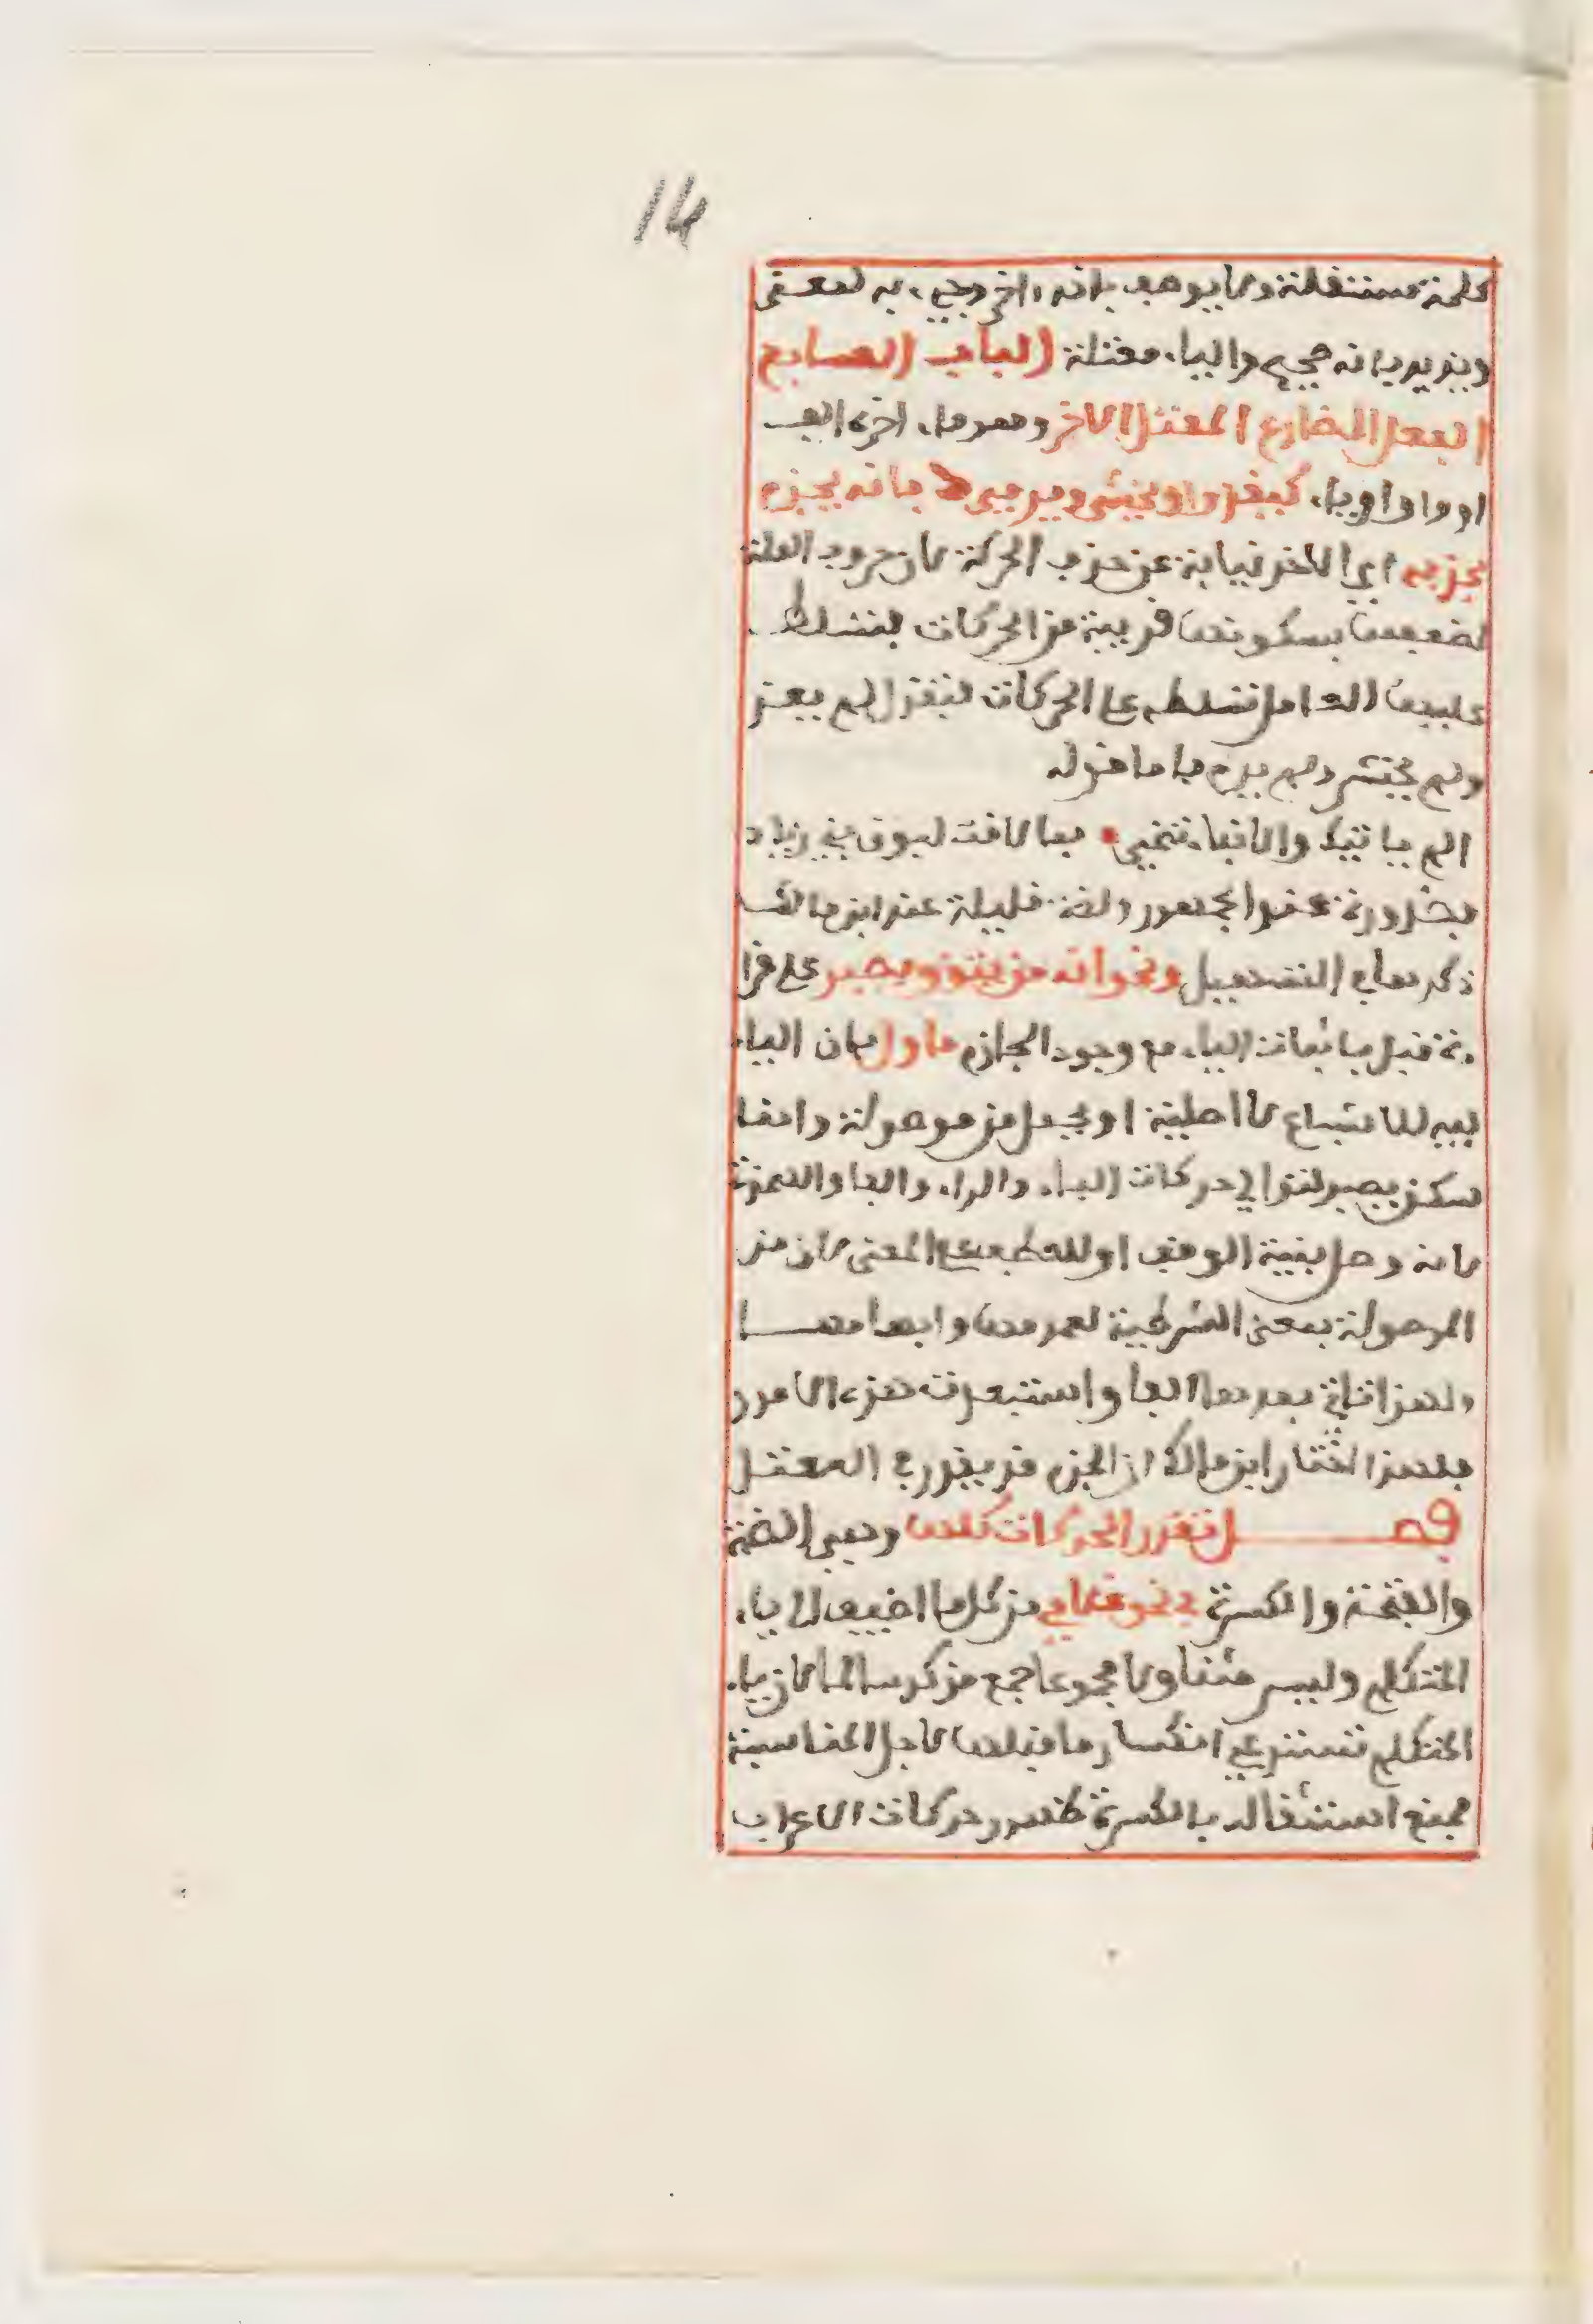 14
كلمة مستقلة ولا يوصف بانه اخر وجيء به لمعنى
ويزيد بانه صحيح والياء معتلة الباب السابع
الفعل المضارع المعتل الاخر وهو ما اخره الف
او واو او ياء كيغزو ويخشى ويرمي فانه يجزم
بحذفه اي الاخر نيابة عن حذف الحركة لان حروف العلة
لضعفها بسكونها قريبة من الحركات فتسلط
عليها العامل تسلطه على الحركات فتقول لم يغز
ولم يخش ولم يرم فاما قوله
الم ياتيك والانباء تنمي بما لاقت لبون بني زياد
فضرورة عند الجمهور ولغة قليلة عند ابن مالك
ذكرها في التسهيل ونحو انه من يتق ويصبر على قرا
ءة قنبل باثبات الياء مع وجود الجازم ماول بان الياء
فيه للاشباع لا اصلية او بجعل من موصولة وانما
سكن يصبر لتوالي حركات الباء والراء والفا والهمزة
لانه وصل بنية الوقف او للعطف على المعنى لان من
الموصولة بمعنى الشرطية لعمومها وابهامها
ولهذا تاتي بعدها الفا واستبعدت هذه الامور
فلهذا اختار ابن مالك ان الجزم قد يقدر في المعتل
فصل تقدر الحركات كلها وهي الضمة
والفتحة والكسرة في نحو غلامي من كل ما اضيف الى ياء
المتكلم وليس مثنا ولا مجموعا جمع مذكر سالما لان ياء
المتكلم تستدعي انكسار ما قبلها لاجل المناسبة
فمنع اشتغاله بالكسرة ظهور حركات الاعراب